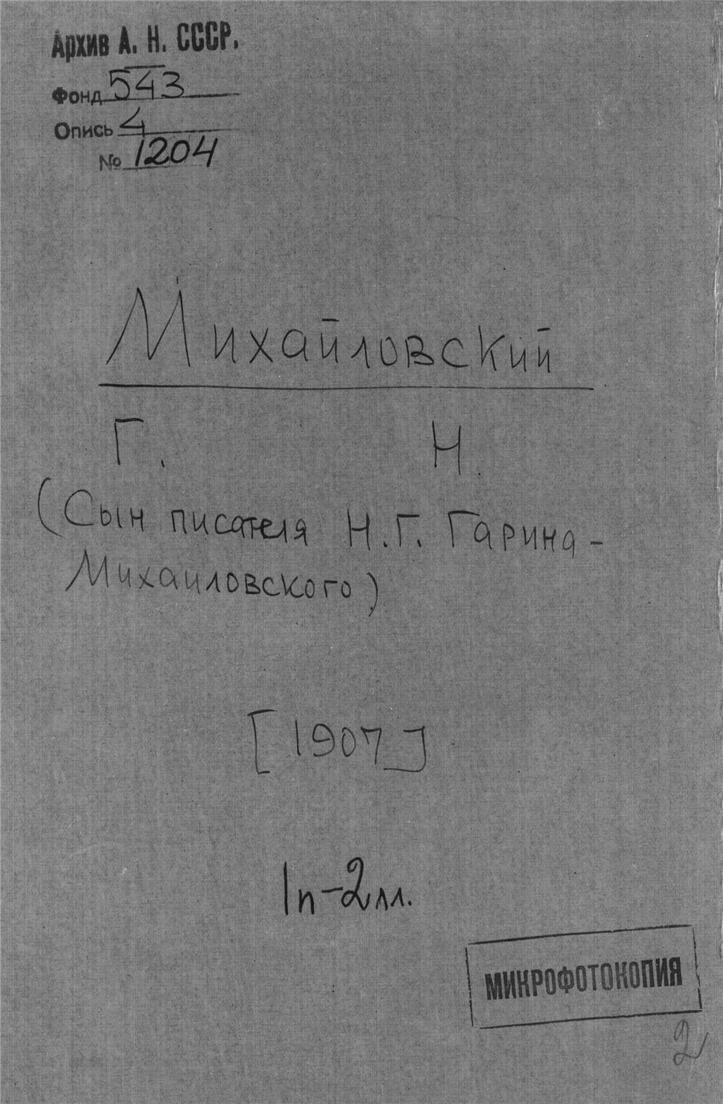 Архив А. Н. СССР.
Фонд 543
Опись 4
№ 1204
Михайловский
Г. Н.
(Сын писателя Н.Г. Гарина-
Михайловского)
[1907]
1п-2лл.
МИКРОФОТОКОПИЯ
2